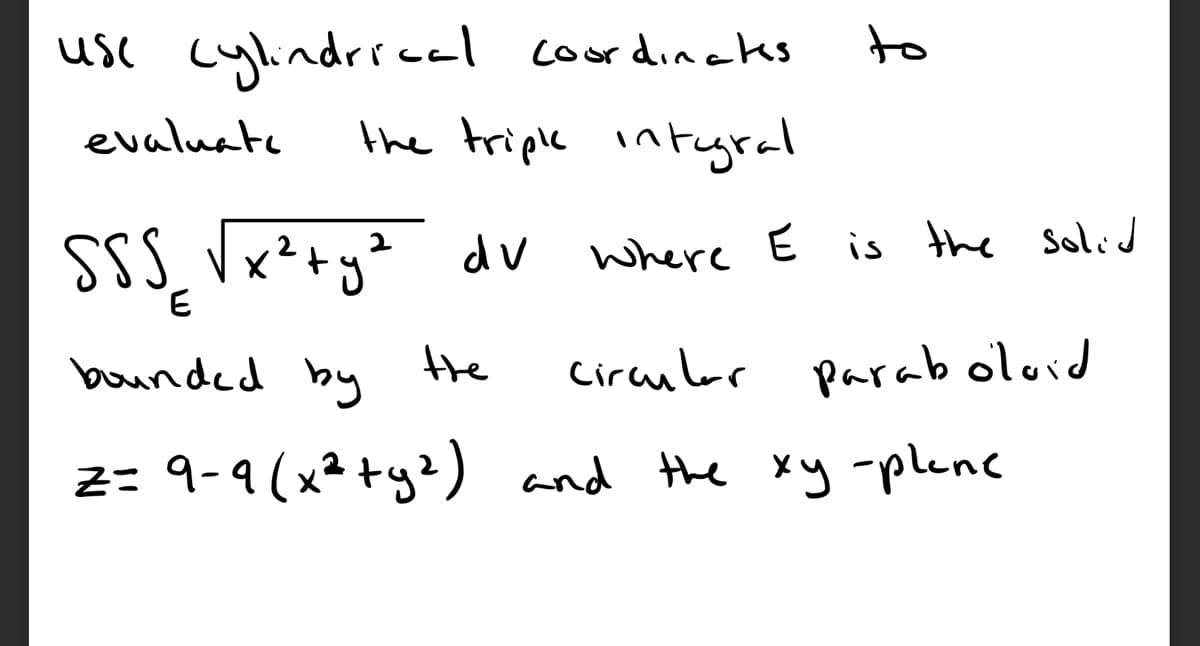 use cylindrical coordinates to
evaluate the triple integral
∫∫∫_E √(x²+y²) dv where E is the solid
bounded by the circular paraboloid
z= 9-9(x²+y²) and the xy-plane